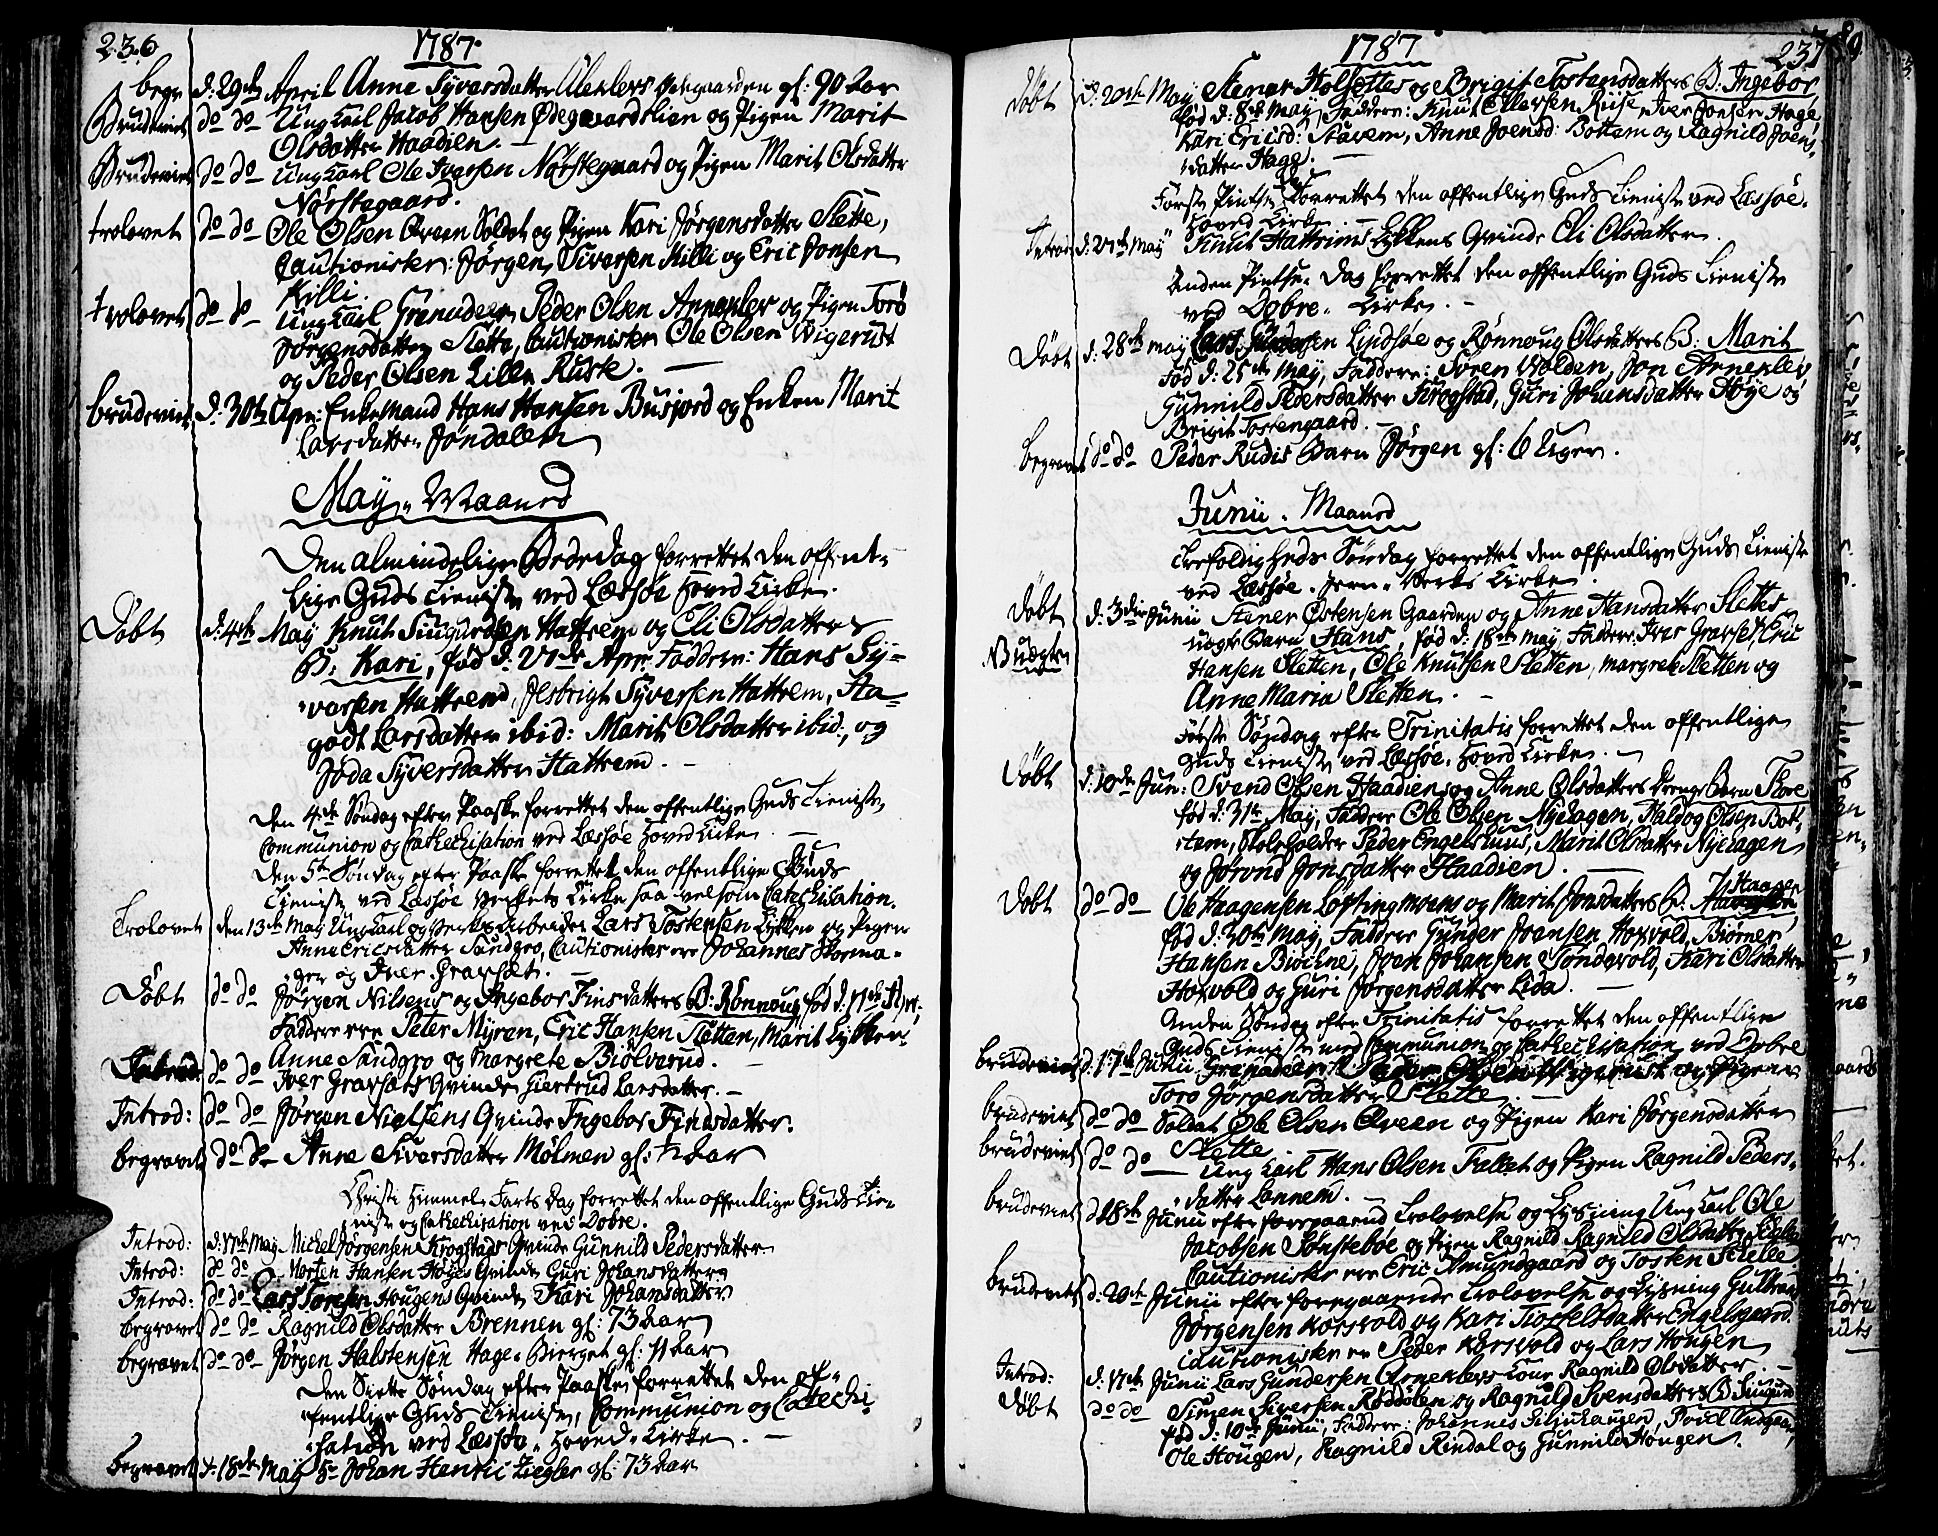 236
1787
begr d: 29de April Anne Syversdatter ødegaarden gl: 90 aar
Brudeviet do do Ung Karl Jacob Hansen Ødegaardslien og Pigen Marit
Olsdatter Haadien.
Brudeviet do do Ung Karl Ole Ivarsen Nørstegaard og Pigen Marit Olsdatter
Nørstegaard.
trolovet do do Ole Olsen Øveren Soldat og Pigen Kari Jørgensdatter Slette,
Cautionister: Jørgen Siversen Killi og Eric Jonsen
Killi.
trolovet do do Ung Karl Grenadeer Peder Olsen Annexlev og Pigen Torø
Jørgensdatter Slette, Cautionister Ole Olsen Wigerust
og Peder Olsen Lille Ruste.
brudeviet d: 30te Apr: Enkemand Hans Hansen Busiord og Enken Marit
Larsdatter Jøndalen
May Maaned
Den almindelige Bededag forrettet den offent-
lige Guds Tieniste ved Læssøe Hoved Kirke.
Døbt d: 4de May Knut Siugurdsen Hattrem og Eli Olsdatters
B: Kari, fød d: 21de Apr. Faddere: Hans Sy-
versen Hattrem, Jesbrigt Syversen Hattrem, Sta-
godt Larsdatter ibid: Marit Olsdatter ibid:, og
Jøda Syversdatter Hattrem.
Den 4de Søndag efter Paaske forrettet den offentlige Guds Tieniste,
Communion og Cathechisation ved Læssøe Hoved Kirke.
Den 5te Søndag efter Paaske forrettet den offentlige Guds
Tieniste ved Læssøe Verkets Kirke saavelsom Catechisation.
Trolovet den 13de May Ung Karl og Verks arbeider Lars Tostensen Lykken og Pigen
Anne Ericsdatter Sandgro, Cautionister ere Johannes Storma-
ger og Iver Gravset.
Døbt do do Jørgen Nilsens og Ingebor Finsdatters B: Rønnoug, fød d: 17de Apr:
Faddere ere Peter Myren, Eric Hansen Sletten, Marit Lykken,
Anne Sandgro og Margrete Biølverud.
Introd: do do Iver Gravsets Qvinde Giertrud Larsdatter.
Introd: do do Jørgen Nielsens Qvinde Ingebor Finsdatter.
begravet do do Anne Siversdatter Mølmen gl: ½ aar
Christi Himmel Farts Dag forrettet den offentlige Guds Tie-
niste og Cathechisation ved Dobre.
Introd: d: 17de May Michel Jørgensen Krogstads Qvinde Gunnild Pedersdatter
Introd: do do Morten Hansen Høyes Qvinde Guri Johansdatter
Introd: do do Lars Toresen Hougens Qvinde Kari Johansdatter
begravet do do Ragnild Olsdatter Brennen gl: 73 aar
begravet do do Jørgen Halstensen Hage Bierget gl: 71 aar
Den Siette Søndag efter Paaske forrettet den of-
fentlige Guds Tieniste, Communion og Catechi-
sation ved Læssøe Hoved Kirke.
begravet d. 18de May Johan Henric Ziegler gl: 73 aar
1787
237
Døbt d: 20de May Stener Holsettes og Brigit Tostensdatters B: Ingebor
fød d: 8de May, Faddere: Knut Ellevsen Kiise, Iver Jonsen Hage
Kari Ericsd: Stavem, Anne Joensd: Bottem og Ragnild Joens-
datter Hage.
Første Pintse Dag forrettet den offentlige Guds Tieniste ved Læssøe
Hoved Kirke.
Introd: d: 27de May Knut Hattrims Lykkens Qvinde Eli Olsdatter.
Anden Pintse Dag forrettet den offentlige Guds Tieniste
ved Dobre Kirke.
Døbt d: 28de May Lars Lindsøe og Rønnoug Olsdatters B: Marit
fød d: 25de May, Faddere: Søren Holden, Jon Annexlev
Gunnild Pedersdatter Krogstad, Guri Johansdatter Høye og
Brigit Tostengaard.
begravet do do Peder Rudis Barn Jørgen gl: 6 Uger.
Junii Maaned
Trefoldigheds Søndag forrettet den offentlige Guds Tieniste
ved Læssøe Jern Verks Kirke.
Døbt d: 3die Junii Stener Østensen Gaarden og Anne Hansdatter Slettes
Uægte uægte Barn Hans, fød d: 18de May, Faddere: Iver Gravset, Eric
Hansen Sletten, Ole Knutsen Sletten, Margrete Sletten og
Anne Maria Sletten.
Første Søndag efter Trinitatis forrettet den offentlige
Guds Tieniste ved Læssøe Hoved Kirke.
Døbt d: 10de Jun: Svend Olsen Haadiens og Anne Olsdatters Drenge Barn Thore
fød d: 31te May, Faddere Ole Olsen Nyehagen, Haldog Olsen Bot-
tem, Skoleholder Peder Engelshuus, Marit Olsdatter Nyehagen
og Jørond Jonsdatter Haadien.
Døbt do do Ole Haagensen Løftingsmoens og Marit Jonsdatters B: Haagen
fød d: 30te May, Faddere Gunder Joensen Hoxvold, Biørner
Hansen Biøchne, Joen Johansen Søndevold, Kari Olsdatter
Hoxvold og Guri Jørgensdatter Lida.
Anden Søndag efter Trinitatis forrettet den offentlige
Guds Tieniste med Communion og Cathechisation ved Dobre
brudeviet d: 17de Junii Grenadeer Peder Olsen og Pigen
Toro Jørgensdatter Slette.
brudeviet do do Soldat Ole Olsen Øveren og Pigen Kari Jørgensdatter
Slette.
brudeviet do do Ung Karl Hans Olsen Fallet og Pigen Ragnild Peders-
datter Lannem.
brudeviet d: 18de Junii efter foregaaend Trolovelse og Lysning Ung Karl Ole
Jacobsen Sønsteboe og Pigen Ragnild Ragnild Olsdatter
Cautionister ere Eric Amundgaard og Tosten Skelle
brudeviet d: 20de Junii efter foregaaende Trolovelse og Lysning Guttorm
Jørgensen Korsvold og Kari Tiostelsdatter Engelsgaard
Cautionister ere Peder Korsvold og Lars Hougen
Introd: d: 17de Junii Lars Gundersen Annexlevs Kone Ragnild Olsdatter
Døbt do do Simen Siversen Røddølen og Ragnild Svensdatters B Siugurd
fød d: 10de Junii, Faddere: Johannes Silliehaugen, Poul
Ole Hougen, Ragnild Rindal og Gunnild Hougen.